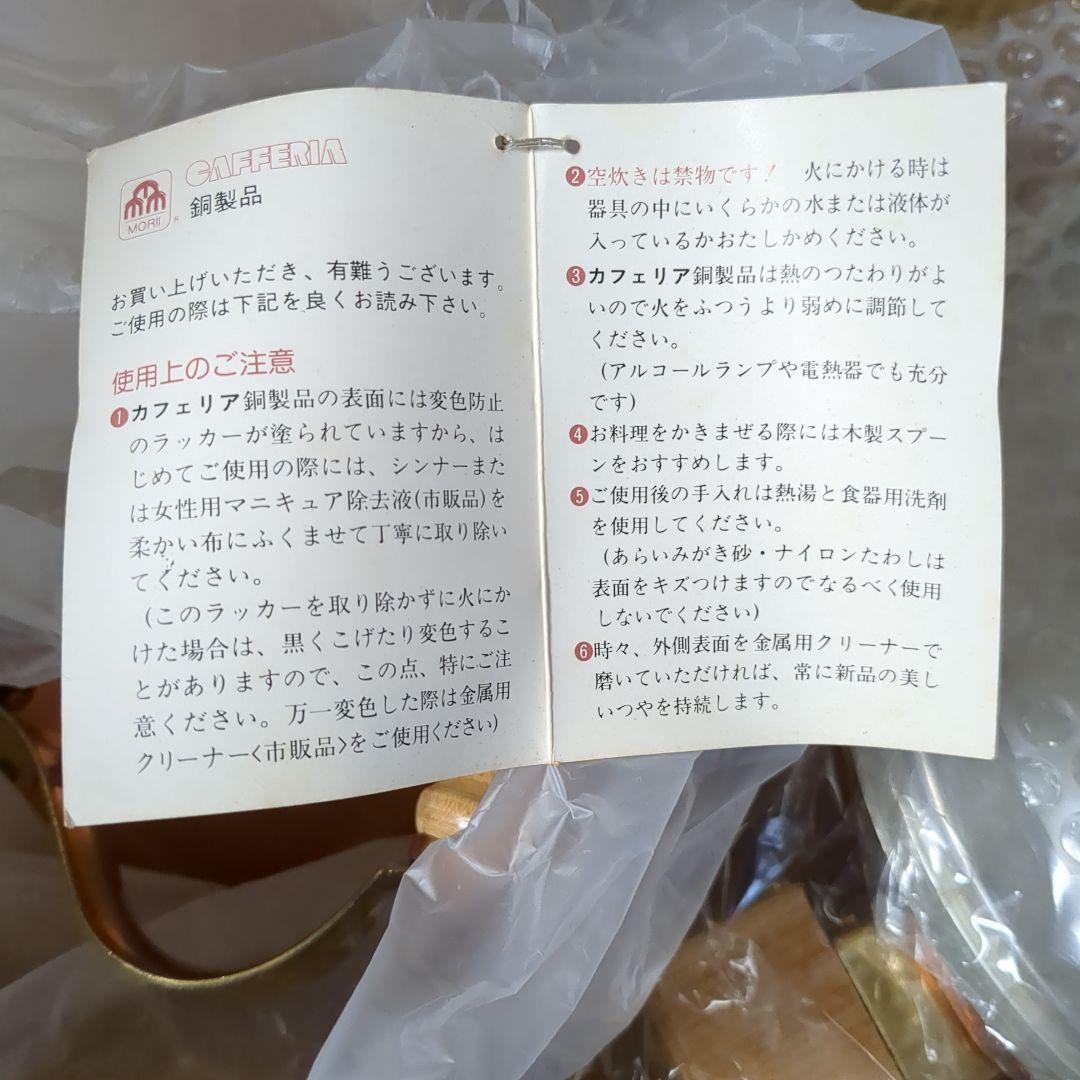 CAFFERIA
MORII
R
銅製品
お買い上げいただき、有難うございます。
ご使用の際は下記を良くお読み下さい。
使用上のご注意
❶カフェリア銅製品の表面には変色防止
のラッカーが塗られていますから、は
じめてご使用の際には、シンナーまた
は女性用マニキュア除去液(市販品)を
柔かい布にふくませて丁寧に取り除い
てください。
(このラッカーを取り除かずに火にか
けた場合は、黒くこげたり変色するこ
とがありますので、この点、特にご注
意ください。万一変色した際は金属用
クリーナー〈市販品〉をご使用ください)
❷空炊きは禁物です! 火にかける時は
器具の中にいくらかの水または液体が
入っているかおたしかめください。
❸カフェリア銅製品は熱のつたわりがよ
いので火をふつうより弱めに調節して
ください。
(アルコールランプや電熱器でも充分
です)
❹お料理をかきまぜる際には木製スプー
ンをおすすめします。
❺ご使用後の手入れは熱湯と食器用洗剤
を使用してください。
(あらいみがき砂・ナイロンたわしは
表面をキズつけますのでなるべく使用
しないでください)
❻時々、外側表面を金属用クリーナーで
磨いていただければ、常に新品の美し
いつやを持続します。